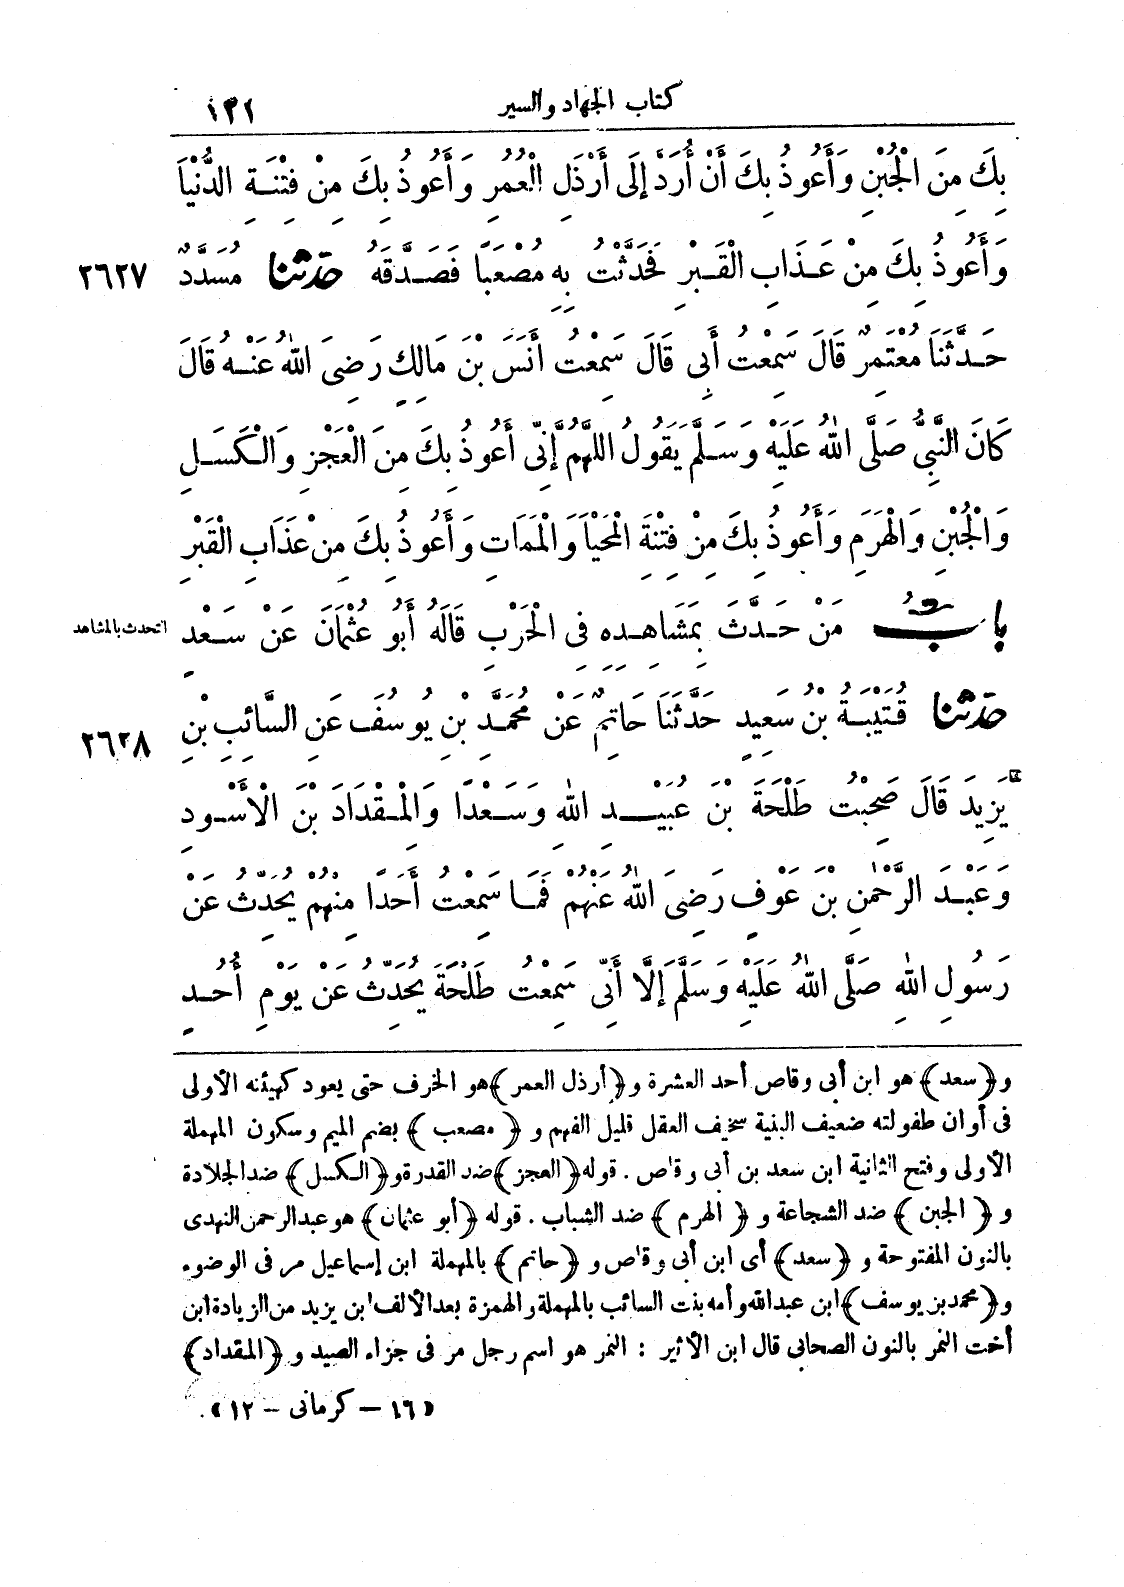 كتاب الجهاد والسير
١٢١
بِكَ مِنَ الْجُبْنِ وَأَعُوذُ بِكَ أَنْ أُرَدَّ إِلَى أَرْذَلِ الْعُمُرِ وَأَعُوذُ بِكَ مِنْ فِتْنَةِ الدُّنْيَا
وَأَعُوذُ بِكَ مِنْ عَذَابِ الْقَبْرِ فَحَدَّثْتُ بِهِ مُصْعَبًا فَصَدَّقَهُ حَدَّثَنَا مُسَدَّدٌ
٢٦٢٧
حَدَّثَنَا مُعْتَمِرٌ قَالَ سَمِعْتُ أَبِي قَالَ سَمِعْتُ أَنَسَ بْنَ مَالِكٍ رَضِيَ اللهُ عَنْهُ قَالَ
كَانَ النَّبِيُّ صَلَّى اللهُ عَلَيْهِ وَسَلَّمَ يَقُولُ اللَّهُمَّ إِنِّي أَعُوذُ بِكَ مِنَ الْعَجْزِ وَالْكَسَلِ
وَالْجُبْنِ وَالْهَرَمِ وَأَعُوذُ بِكَ مِنْ فِتْنَةِ الْمَحْيَا وَالْمَمَاتِ وَأَعُوذُ بِكَ مِنْ عَذَابِ الْقَبْرِ
بَابُ مَنْ حَدَّثَ بِمَشَاهِدِهِ فِي الْحَرْبِ قَالَهُ أَبُو عُثْمَانَ عَنْ سَعْدٍ
التحدث بالمشاهد
حَدَّثَنَا قُتَيْبَةُ بْنُ سَعِيدٍ حَدَّثَنَا حَاتِمٌ عَنْ مُحَمَّدِ بْنِ يُوسُفَ عَنِ السَّائِبِ بْنِ
٢٦٢٨
يَزِيدَ قَالَ صَحِبْتُ طَلْحَةَ بْنَ عُبَيْدِ اللهِ وَسَعْدًا وَالْمِقْدَادَ بْنَ الْأَسْوَدِ
وَعَبْدَ الرَّحْمٰنِ بْنَ عَوْفٍ رَضِيَ اللهُ عَنْهُمْ فَمَا سَمِعْتُ أَحَدًا مِنْهُمْ يُحَدِّثُ عَنْ
رَسُولِ اللهِ صَلَّى اللهُ عَلَيْهِ وَسَلَّمَ إِلَّا أَنِّي سَمِعْتُ طَلْحَةَ يُحَدِّثُ عَنْ يَوْمِ أُحُدٍ
و﴿سعد﴾ هو ابن أبى وقاص أحد العشرة و﴿أرذل العمر﴾ هو الخرف حتى يعود كهيئته الأولى
فى أوان طفولته ضعيف البنية سخيف العقل قليل الفهم و ﴿مصعب﴾ بضم الميم وسكون المهملة
الأولى وفتح الثانية ابن سعد بن أبى وقاص . قوله ﴿العجز﴾ ضد القدرة و﴿الكسل﴾ ضد الجلادة
و ﴿الجبن﴾ ضد الشجاعة و ﴿الهرم﴾ ضد الشباب . قوله ﴿أبو عثمان﴾ هو عبد الرحمن النهدى
بالنون المفتوحة و ﴿سعد﴾ أى ابن أبى وقاص و ﴿حاتم﴾ بالمهملة ابن إسماعيل مر فى الوضوء
و﴿محمد بن يوسف﴾ ابن عبد الله وأمه بنت السائب بالمهملة والهمزة بعد الألف ابن يزيد من الزيادة ابن
أخت النمر بالنون الصحابى قال ابن الأثير : النمر هو اسم رجل مر فى جزاء الصيد و ﴿المقداد﴾
«١٦ – كرمانى – ١٢»